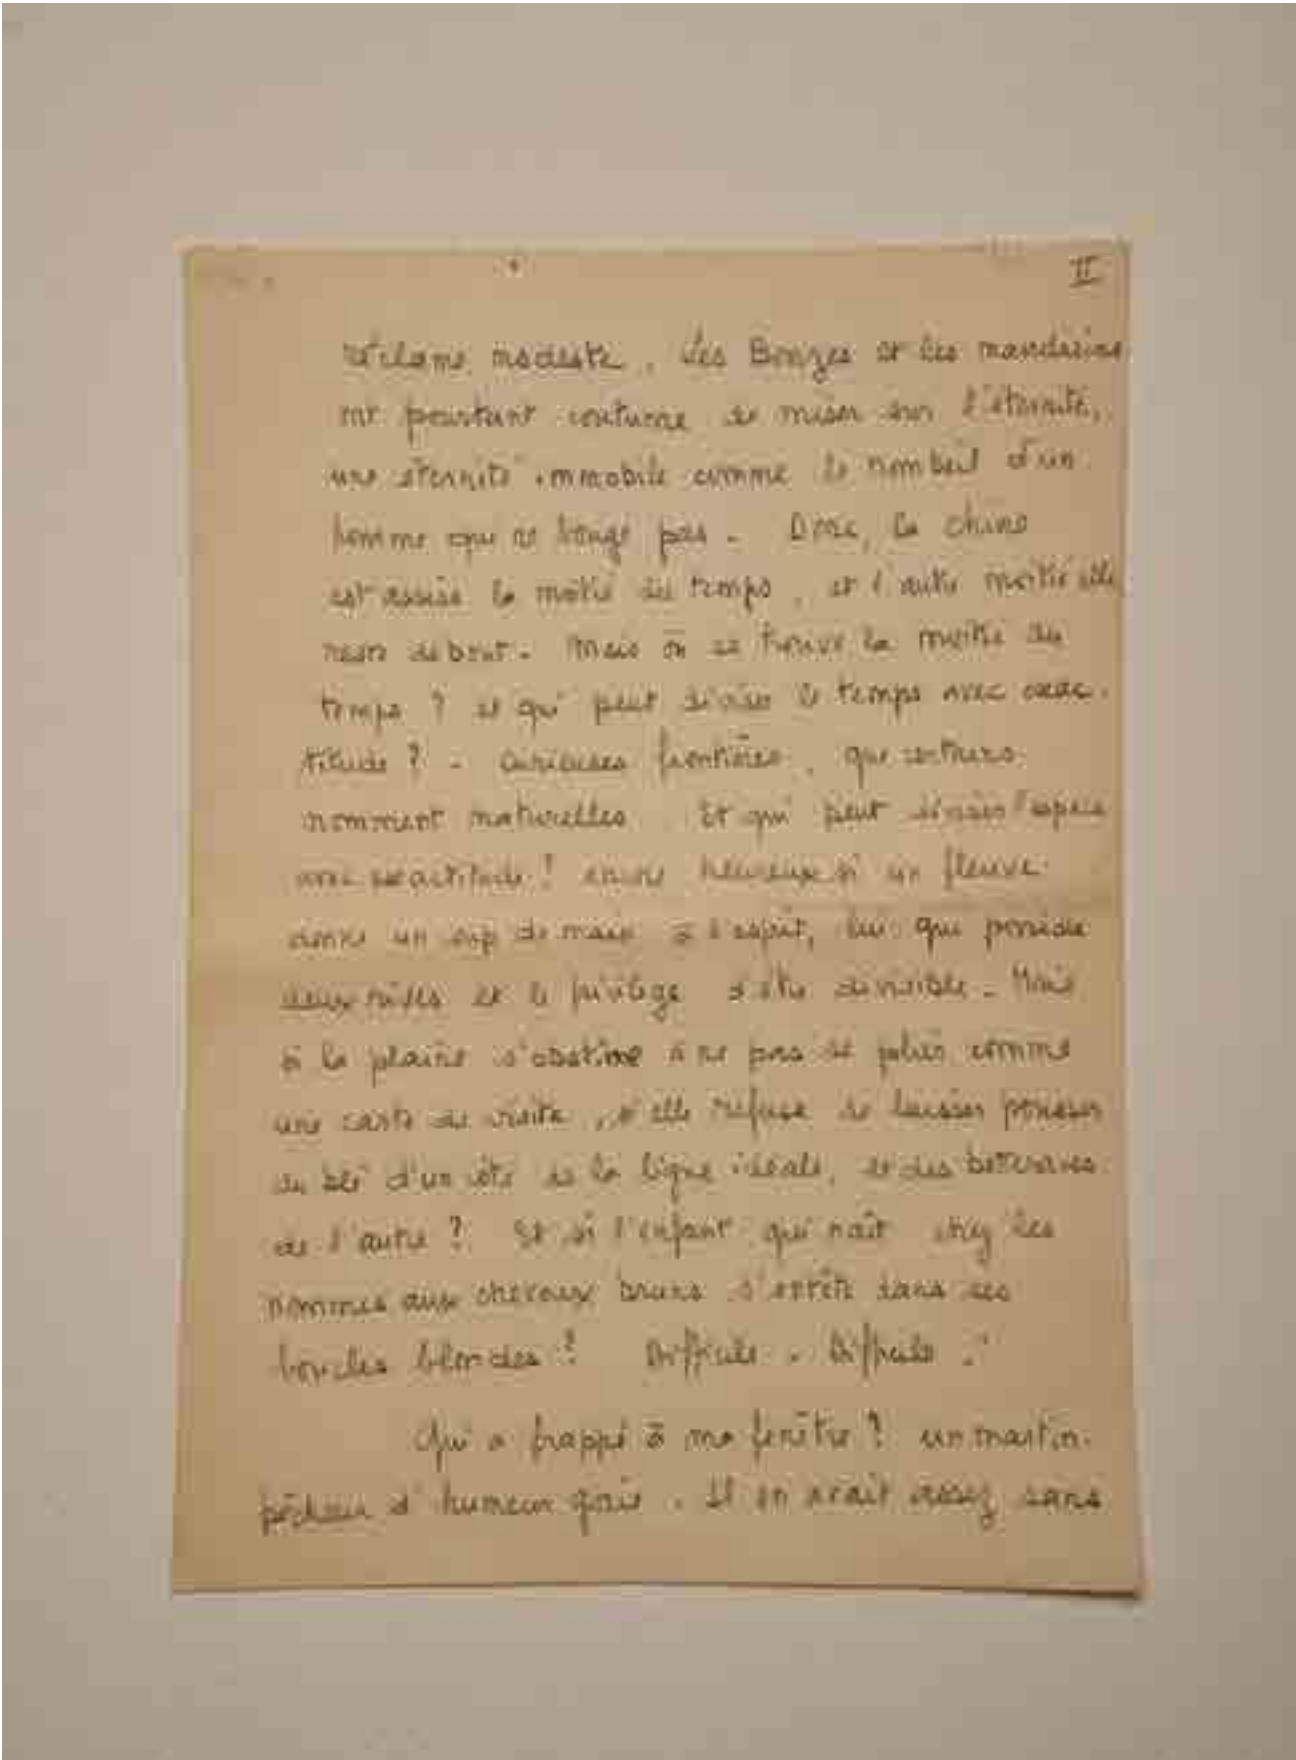 II
réclame modeste. Les Bonzes et les mandarins
ont pourtant coutume de miser sur l'éternité,
une éternité immobile comme le nombril d'un
homme qui ne bouge pas. Donc, la chine
est assise la moitié du temps, et l'autre moitié elle
reste debout. Mais où se trouve la moitié du
temps ? et qui peut diviser le temps avec exac-
titude ? - Curieuses frontières, que certains
nomment naturelles. Et qui peut diviser l'espace
avec exactitude ? encore heureux si un fleuve
donne un coup de main à l'esprit, lui qui possède
deux rives et le privilège d'être divisible. Mais
si la plaine s'obstine à ne pas se plier comme
une carte de visite, si elle refuse de laisser pousser
du blé d'un côté de la ligne idéale, et des betteraves
de l'autre ? Et si l'enfant qui naît chez les
hommes aux cheveux bruns s'entête dans ses
boucles blondes ? Difficile. Difficile.
Qui a frappé à ma fenêtre ? un martin-
pêcheur d'humeur gaie. Il en avait assez sans